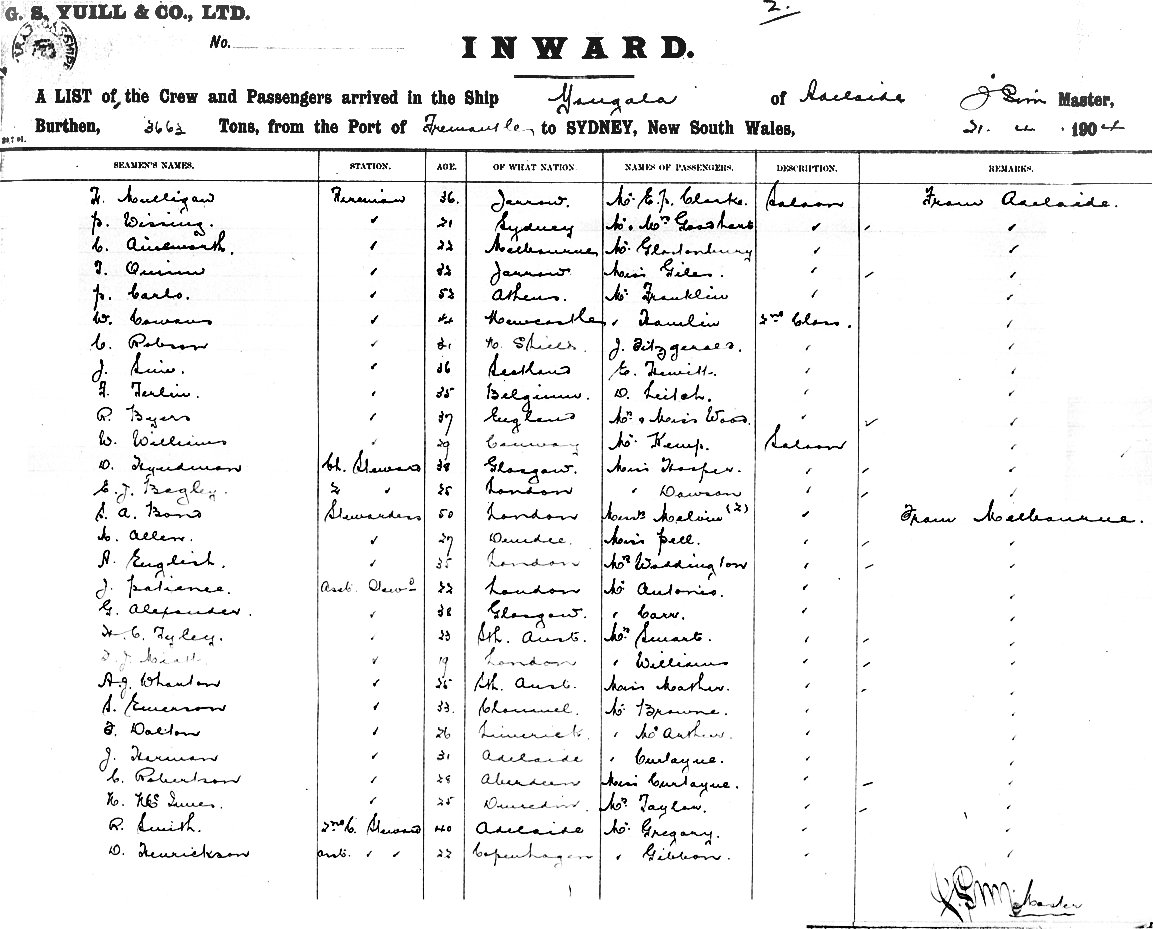 G. S. YUILL & CO., LTD.
2.
No.
INWARD.
A LIST of the Crew and Passengers arrived in the Ship Yongala of Adelaide Master,
Burthen, 3663 Tons, from the Port of Fremantle to SYDNEY, New South Wales, 1904
SEAMEN'S NAMES. STATION. AGE. OF WHAT NATION. NAMES OF PASSENGERS. DESCRIPTION. REMARKS.
Mulligan Fireman 36. Jarrow. Mr E. J. Clarke. Saloon From Adelaide.
P. Wissing. ✓ 21 Sydney Mr & Mrs Goodhart ✓ ✓
C. Ainsworth. ✓ 22 Melbourne Mr Glastonbury ✓ ✓
Quinn ✓ 32 Jarrow Miss Giles. ✓ ✓
P. Carlo. ✓ 52 Athens. Mr Franklin ✓ ✓
W. Cowans ✓ 44 Newcastle " Hamlin 2nd Class. ✓
C. Robson ✓ 31 N. Shields. J. Fitzgerald. ✓ ✓
J. Sim. ✓ 36 Scotland E. Hewitt. ✓ ✓
Ferlin. ✓ 35 Belgium. D. Leitch. ✓ ✓
R. Byers ✓ 37 England Mrs & Miss Wood. ✓ ✓
W. Williams ✓ 29 Conway Mr Kemp. Saloon ✓
D. Hyndman Ch. Steward 38 Glasgow. Miss Hooper. ✓ ✓
E. J. Bagley. 2 " 25 London " Dawson ✓ ✓
S. A. Bond Stewardess 50 London Misses Melvin (2) ✓ From Melbourne.
Allen. ✓ 27 Dundee. Miss Pell. ✓ ✓
A. English. ✓ 35 London Mrs Waddington ✓ ✓
J. Patience. Asst. Stewd 22 London Mr Antonio. ✓ ✓
G. Alexander. ✓ 38 Glasgow. " Carr. ✓ ✓
H. C. Tyley. ✓ 23 Sth. Aust. Mrs Smart. ✓ ✓
✓ 19 London " Williams ✓ ✓
A. J. Wharton ✓ 25 Sth. Aust. Miss Mather. ✓ ✓
S. Emerson ✓ 33. Channel. Mr Browne. ✓ ✓
Dalton ✓ 26 Limerick. " McArthur. ✓ ✓
J. Herman ✓ 31 Adelaide " Curlayne. ✓ ✓
C. Robertson ✓ 28 Aberdeen Miss Curlayne. ✓ ✓
Innes. ✓ 25 Dunedin. Mrs Taylor. ✓ ✓
R. Smith. 2nd C. Steward 40 Adelaide Mr Gregory. ✓ ✓
D. Henrickson asst. " " 22 Copenhagen " Gibbon. ✓ ✓
Master